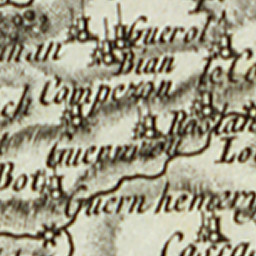 Guerol
man
Bian
le Co
Compezon
ch
Raotan
Guermeon
Lo
Bot
Guern hemery
Casca